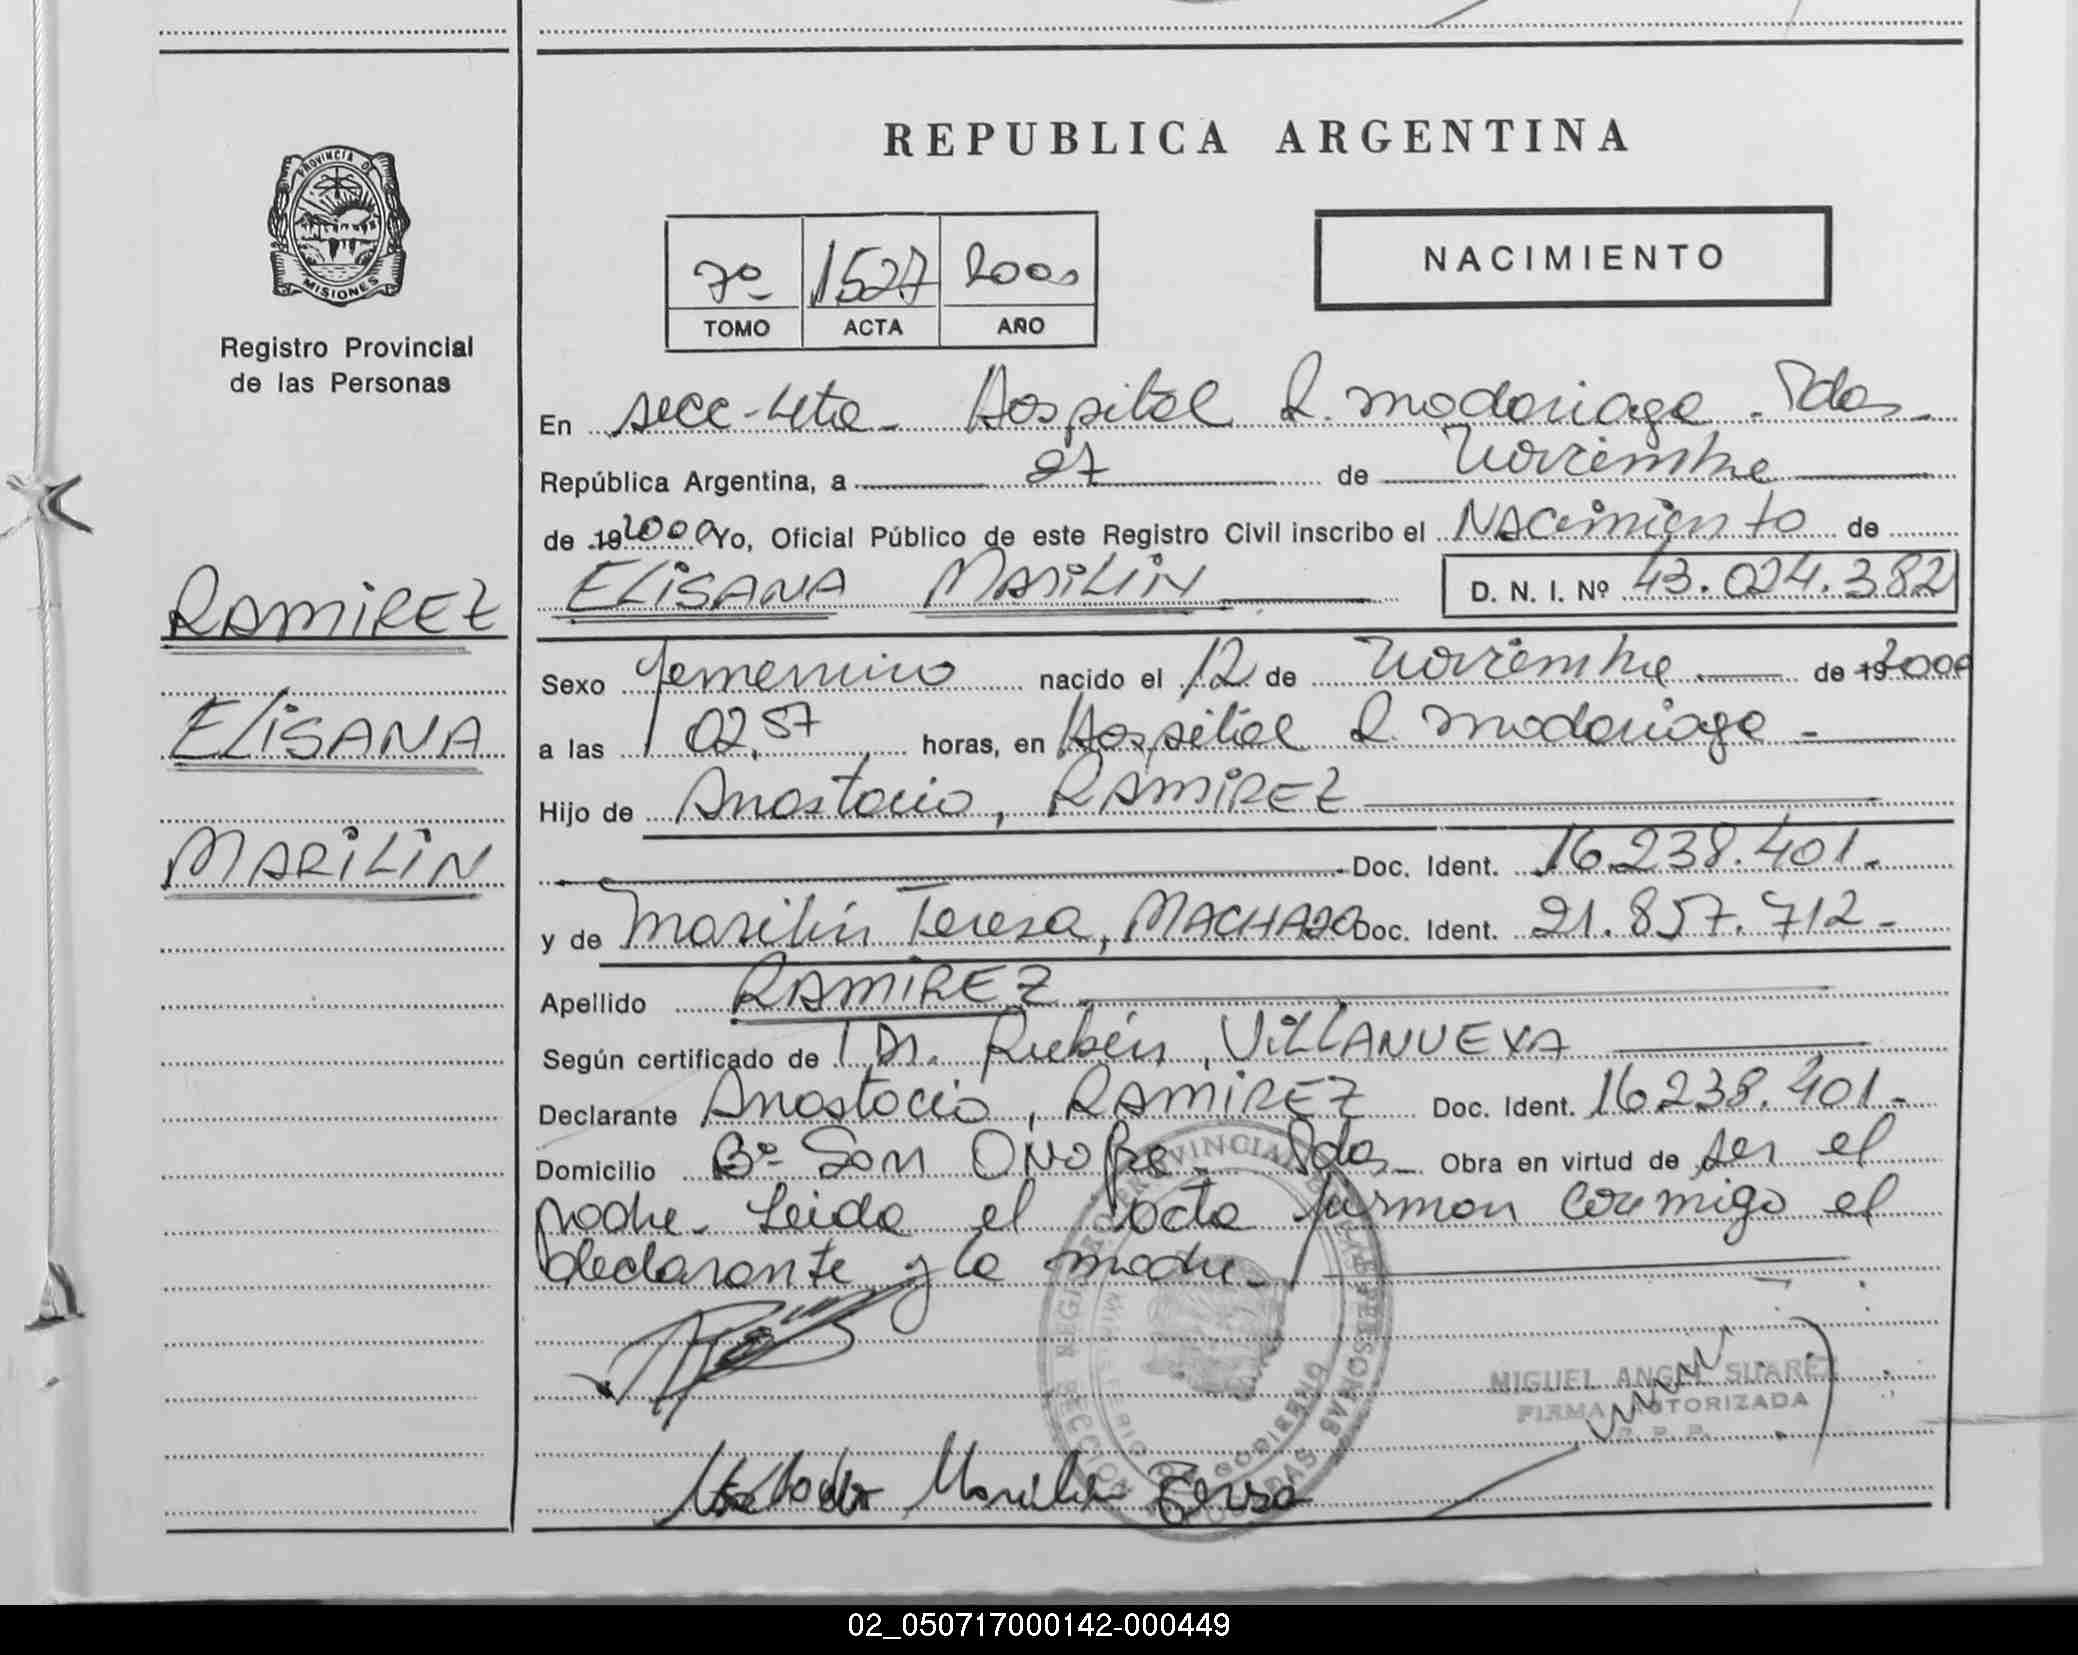 PROVINCIA DE
MISIONES
Registro Provincial
de las Personas
RAMIREZ
ELISANA
MARILIN
REPUBLICA ARGENTINA
7º 1527 2000
TOMO ACTA AÑO
NACIMIENTO
En secc-4ta- Hospital R. Madariaga - Pdas-
República Argentina, a 27 de Noviembre
de 19 2000 Yo, Oficial Público de este Registro Civil inscribo el NACimiento de
ELISANA MARILIN D. N. I. Nº 43.024.382
Sexo femenino nacido el 12 de Noviembre de 19 2000
a las 02,57 horas, en Hospital R. Madariaga -
Hijo de Anastacio, RAMIREZ
Doc. Ident. 16.238.401.-
y de Marilin Teresa, MACHADO Doc. Ident. 21.857.712-
Apellido RAMIREZ
Según certificado de Dr. Rubén, VILLANUEVA
Declarante Anastacio, RAMIREZ Doc. Ident. 16.238.401.-
Domicilio Bº San Onofre - Pdas- Obra en virtud de ser el
padre. Leida el acta firman conmigo el
declarante y la madre-
MIGUEL ANGEL SUAREZ
FIRMA AUTORIZADA
R. P. P.
Marilin Teresa
02_050717000142-000449